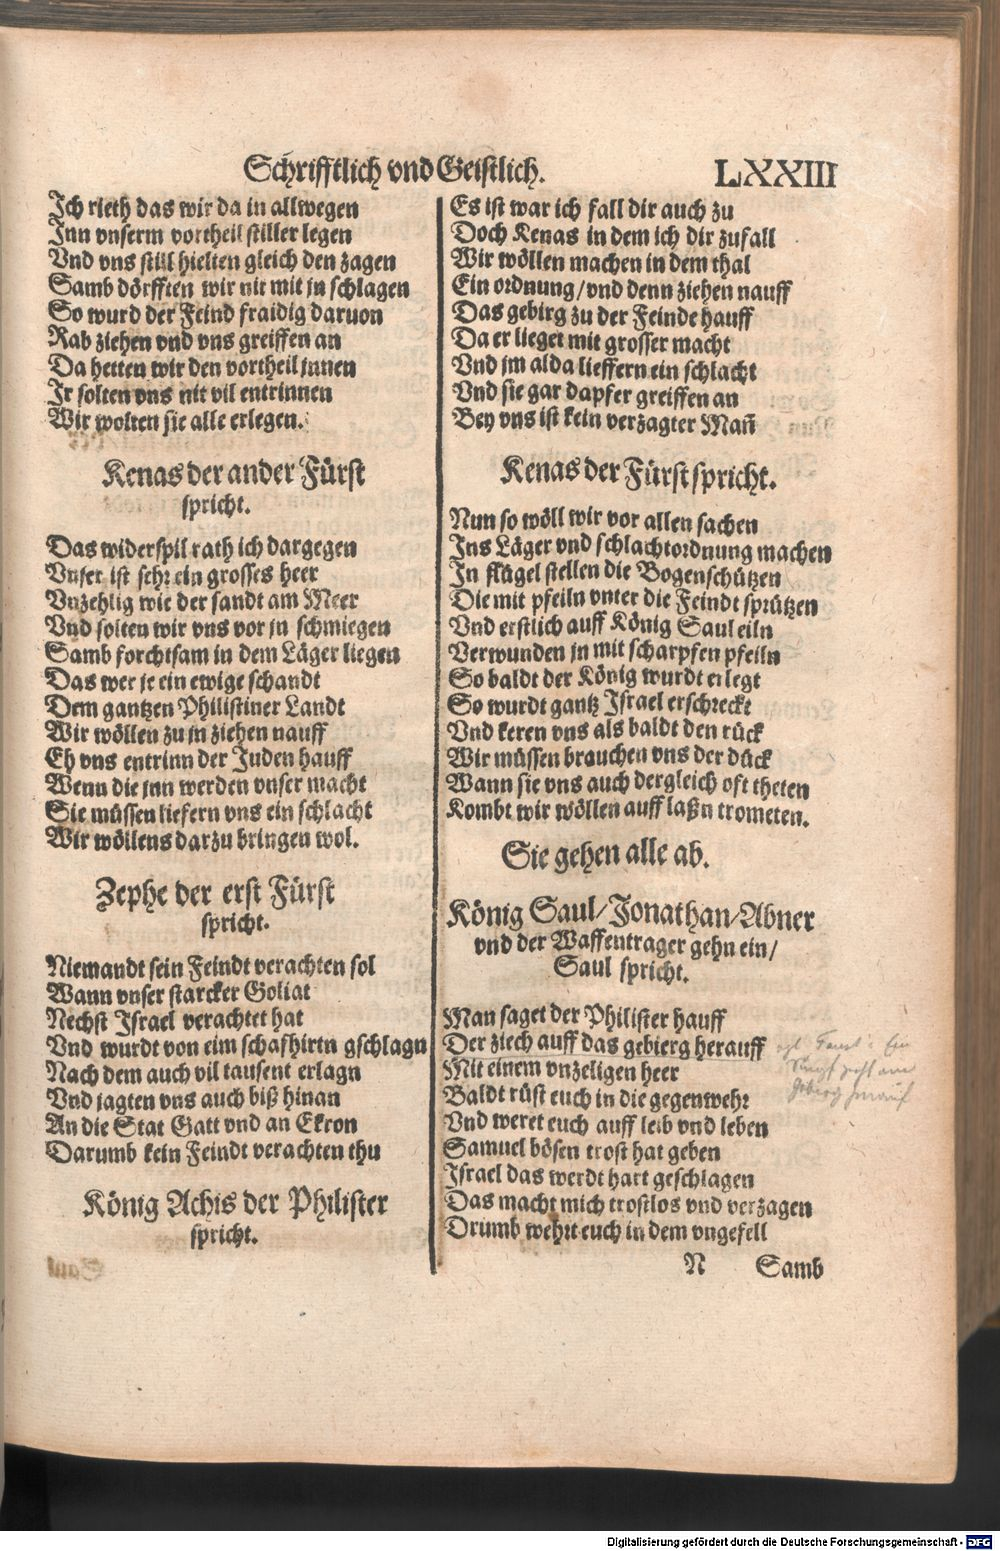 Schrifftlich vnd Geistlich. LXXIII
Ich rieth das wir da in allwegen
Inn vnserm vortheil stiller legen
Vnd vns still hielten gleich den zagen
Samb dörfften wir nit mit jn schlagen
So wurd der Feind fraidig daruon
Rab ziehen vnd vns greiffen an
Da hetten wir den vortheil jnnen
Ir solten vns nit vil entrinnen
Wir wolten sie alle erlegen.
Kenas der ander Fürst
spricht.
Das widerspil rath ich dargegen
Vnser ist sehr ein grosses heer
Vnzehlig wie der sandt am Meer
Vnd solten wir vns vor jn schmiegen
Samb forchtsam in dem Läger liegen
Das wer je ein ewige schandt
Dem gantzen Philistiner Landt
Wir wöllen zu jn ziehen nauff
Eh vns entrinn der Juden hauff
Wenn die jnn werden vnser macht
Sie müssen liefern vns ein schlacht
Wir wöllens darzu bringen wol.
Zephe der erst Fürst
spricht.
Niemandt sein Feindt verachten sol
Wann vnser starcker Goliat
Nechst Israel verachtet hat
Vnd wurdt von eim schafhirtn gschlagn
Nach dem auch vil tausent erlagn
Vnd jagten vns auch biß hinan
An die Stat Gatt vnd an Ekron
Darumb kein Feindt verachten thu
König Achis der Philister
spricht.
Es ist war ich fall dir auch zu
Doch Kenas in dem ich dir zufall
Wir wöllen machen in dem thal
Ein ordnung/vnd denn ziehen nauff
Das gebirg zu der Feinde hauff
Da er lieget mit grosser macht
Vnd jm alda lieffern ein schlacht
Vnd sie gar dapfer greiffen an
Bey vns ist kein verzagter Mañ
Kenas der Fürst spricht.
Nun so wöll wir vor allen sachen
Ins Läger vnd schlachtordnung machen
In flügel stellen die Bogenschützen
Die mit pfeiln vnter die Feindt sprützen
Vnd erstlich auff König Saul eiln
Verwunden jn mit scharpfen pfeiln
So baldt der König wurdt erlegt
So wurdt gantz Israel erschreckt
Vnd keren vns als baldt den rück
Wir müssen brauchen vns der dück
Wann sie vns auch dergleich oft theten
Kombt wir wöllen auff laßn trometen.
Sie gehen alle ab.
König Saul/Jonathan/Abner
vnd der Waffentrager gehn ein/
Saul spricht.
Man saget der Philister hauff
Der ziech auff das gebierg herauff
Mit einem vnzeligen heer
Baldt rüst euch in die gegenwehr
Vnd weret euch auff leib vnd leben
Samuel bösen trost hat geben
Israel das werdt hart geschlagen
Das macht mich trostlos vnd verzagen
Drumb wehrt euch in dem vngefell
N Samb
Digitalisierung gefördert durch die Deutsche Forschungsgemeinschaft - DFG